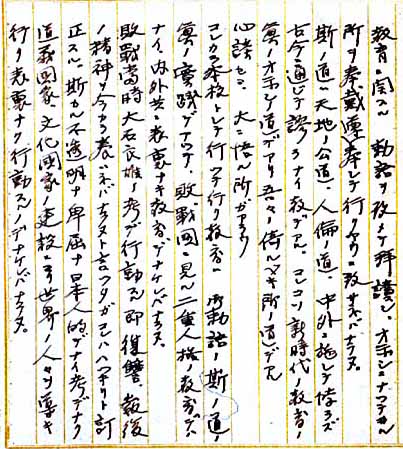 教育ニ関スル 勅語ヲ改メテ拝読シ、オ示シニナツテヰル
所ヲ奉戴遵奉シテ行クヤウニ改メネバナラヌ。
斯ノ道ハ天地ノ公道、人倫ノ道、中外ニ施シテ悖ラズ
古今ニ通ジテ謬ラナイ教デアル。コレコソ新時代ノ教育ノ
オ示シノ道デアリ吾々ノ倚ルベキ所ノ道デアル
心読シテ、大ニ悟ル所ガアラウ
コレカラ本校トシテ行ツテ行ク教育ハ 御勅語ノ斯ノ道ノ
実践デアツテ、敗戦国ニ見ル二重人格ノ教育デハ
ナイ、内外共ニ表裏ナキ教育デナケレバナラヌ。
敗戦当時大石良雄ノ考デ行動スル即復讐、報復
ノ精神ヲ今カラ養ハネバナラヌト言ツタガコレハハツキリト訂
正スル。斯カル不透明ナ卑屈ナ日本人的デナイ考デナク
道義国家、文化国家ノ建設ニヨリ世界ノ人々ヲ導キ
行ク表裏ナク行動スルノデナケレバナラヌ。